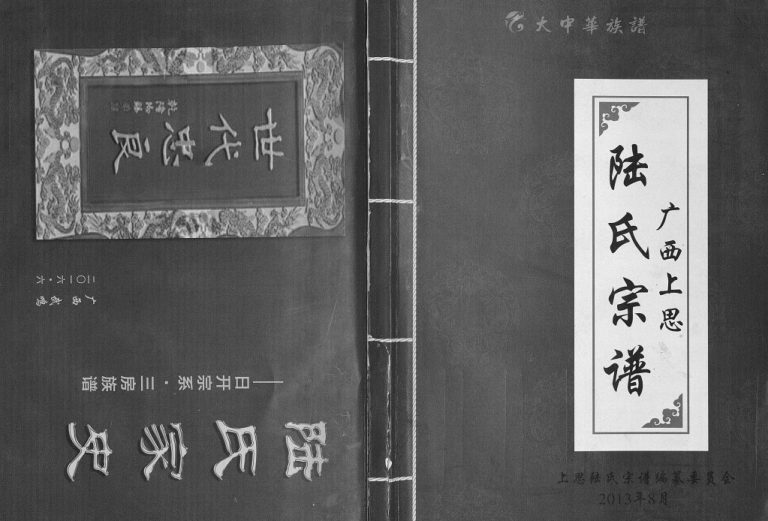 陆氏家史
——日开宗系·三房族谱
广西武鸣
二〇一六·六
世代忠良
大中華族譜
广西上思
陆氏宗谱
上思陆氏宗谱编纂委员会
2013年8月